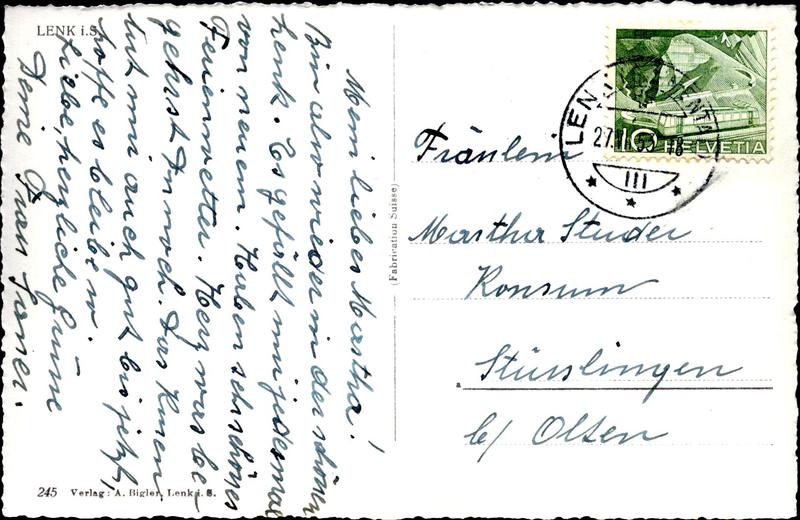 LENK i.S.
Mein liebes Martha!
Bin also wieder in der schönen
Lenk. Es gefällt mir jedesmal
von neuem. Haben sehr schönes
Ferienwetter. Herz was be-
gehrst Du noch. Das Knien
tut mir auch gut bis jetzt,
hoffe es bleibe so.
Liebe, herzliche Grüsse
Deine Frau
245 Verlag: A. Bigler, Lenk i. S.
(Fabrication Suisse)
LENK
27.
III
10 HELVETIA
Fräulein
Martha Studer
Konsum
Stüsslingen
b/ Olten